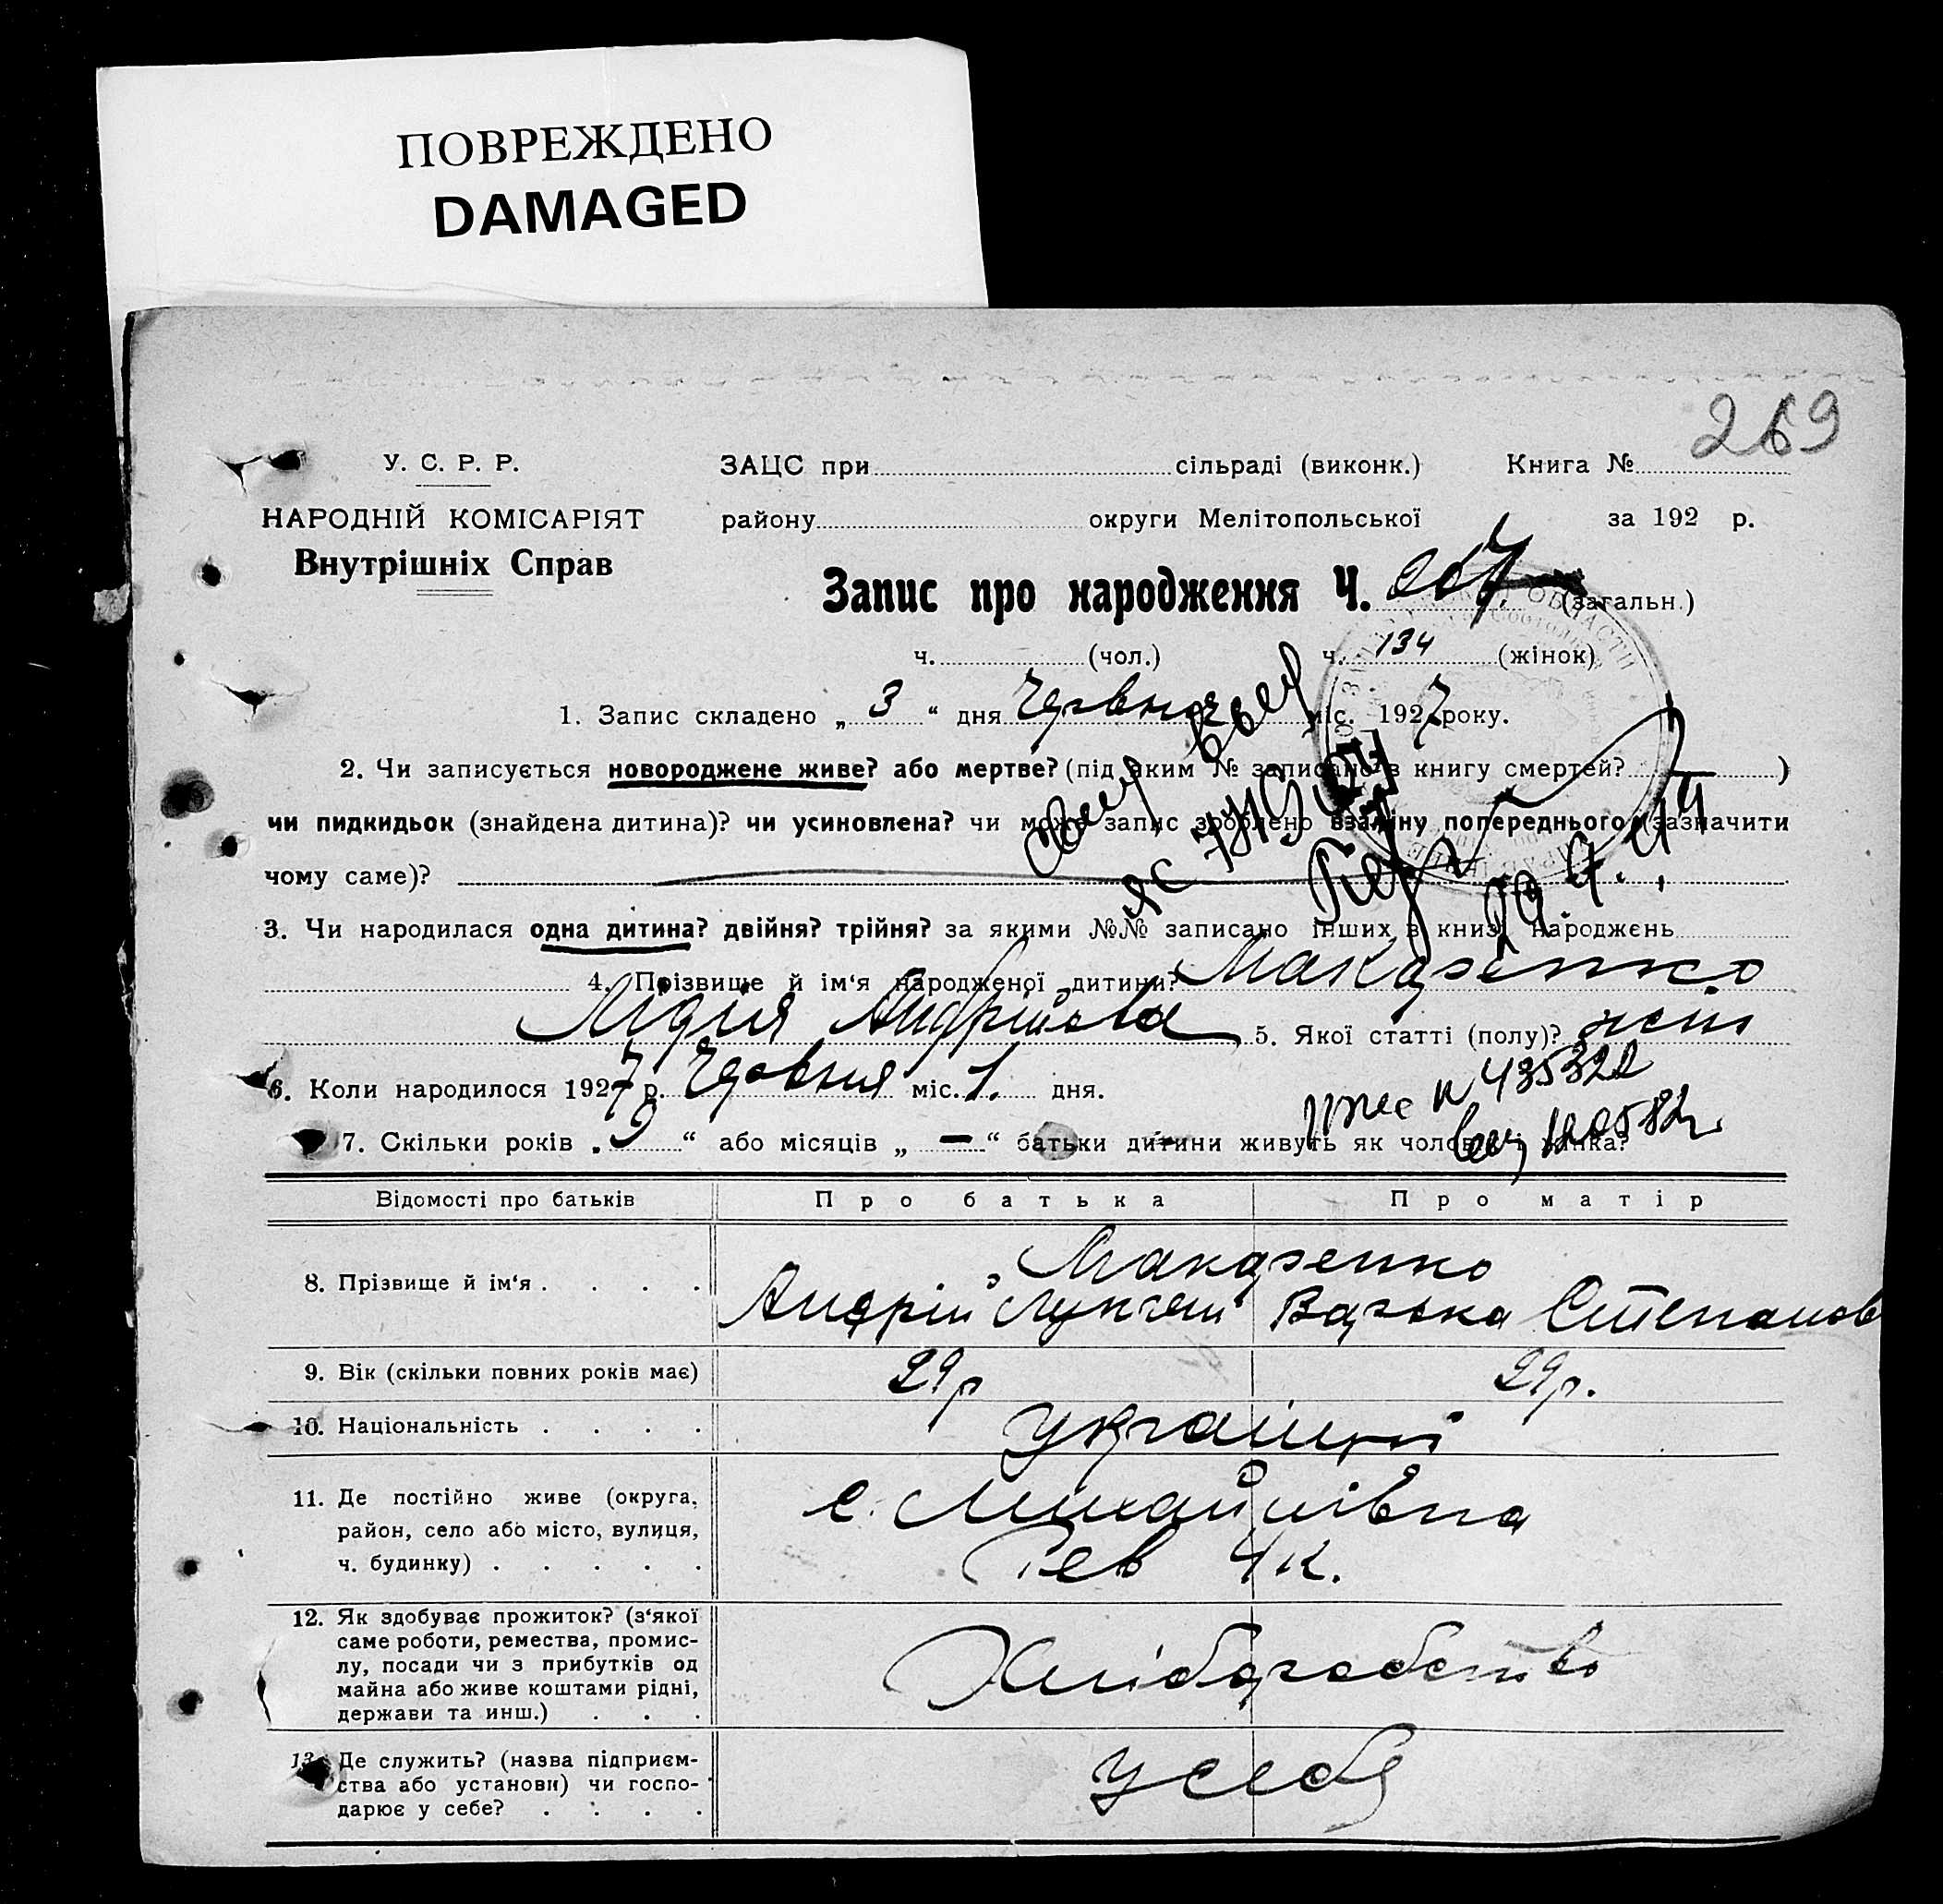 ПОВРЕЖДЕНО
DAMAGED
269
У. С. Р. Р.
НАРОДНІЙ КОМІСАРІЯТ
Внутрішніх Справ
ЗАЦС при сільраді (виконк.) Книга №
району округи Мелітопольської за 192 р.
Запис про народження Ч. 207 (загальн.)
ч. (чол.) ч. 134 (жінок)
1. Запис складено „ 3 “ дня Червня міс. 1927 року.
2. Чи записується новороджене живе? або мертве? (під яким № записано в книгу смертей? — )
чи пидкидьок (знайдена дитина)? чи усиновлена? чи може запис зроблено взаміну попереднього (зазначити
чому саме)?
3. Чи народилася одна дитина? двійня? трійня? за якими №№ записано інших в книзі народжень
4. Прізвище й ім‘я народженої дитини? Макаренко
Лідія Андрійова 5. Якої статті (полу)? жін
6. Коли народилося 1927 р. Червня міс. 1. дня.
N 435322
7. Скільки років „ 9 “ або місяців „ — “ батьки дитини живуть як чоловік і жінка?
Відомості про батьків Про батька Про матір
8. Прізвище й ім‘я . . . . Макаренко
Андрій Степанов
9. Вік (скільки повних років має) 29 р 29 р.
10. Національність . . . . Українці
11. Де постійно живе (округа, район, село або місто, вулиця, ч. будинку) . . . . . с. Михайлівка
Рев 4 к.
12. Як здобуває прожиток? (з‘якої саме роботи, ремества, промислу, посади чи з прибутків од майна або живе коштами рідні, держави та инш.) . . . Хліборобство
13. Де служить? (назва підприємства або установи) чи господарює у себе? . . . . У себе